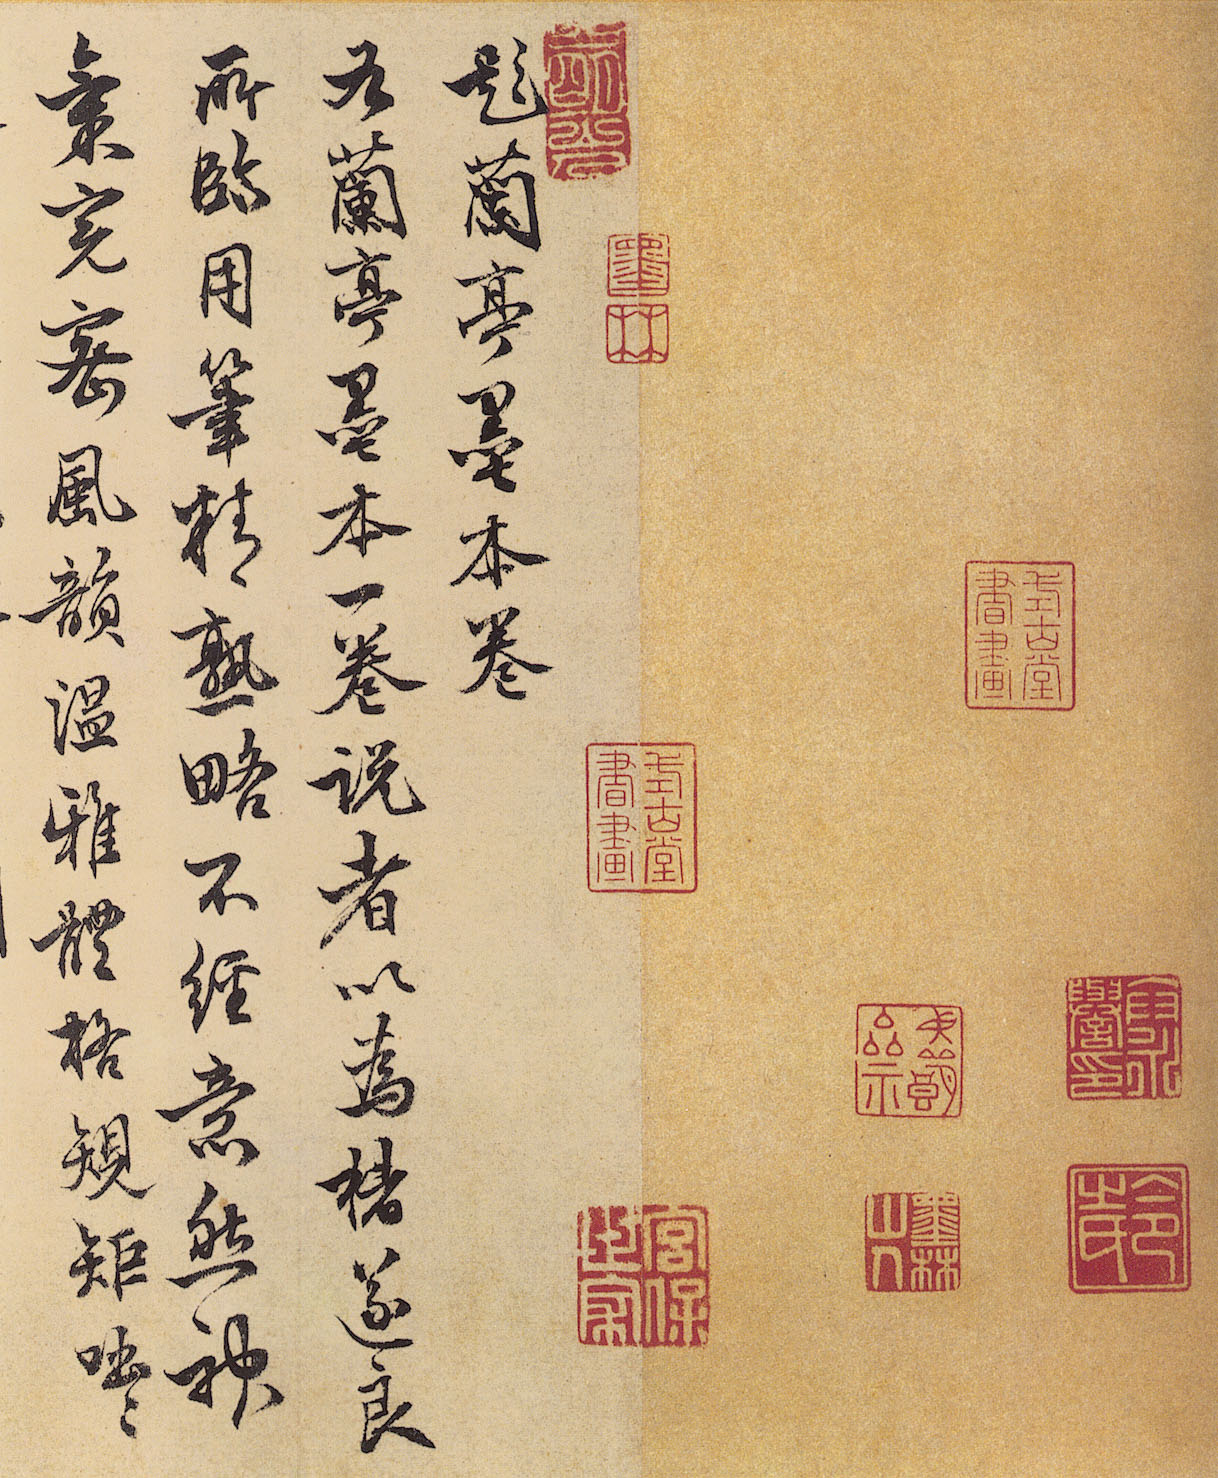 題蘭亭墨本卷
右蘭亭墨本一卷説者以為褚遂良
所臨用筆精熟略不經意然神
氣完密風韻温雅體格規矩
墨林
式古堂書畫
式古堂書畫
宮保世家
墨林山人